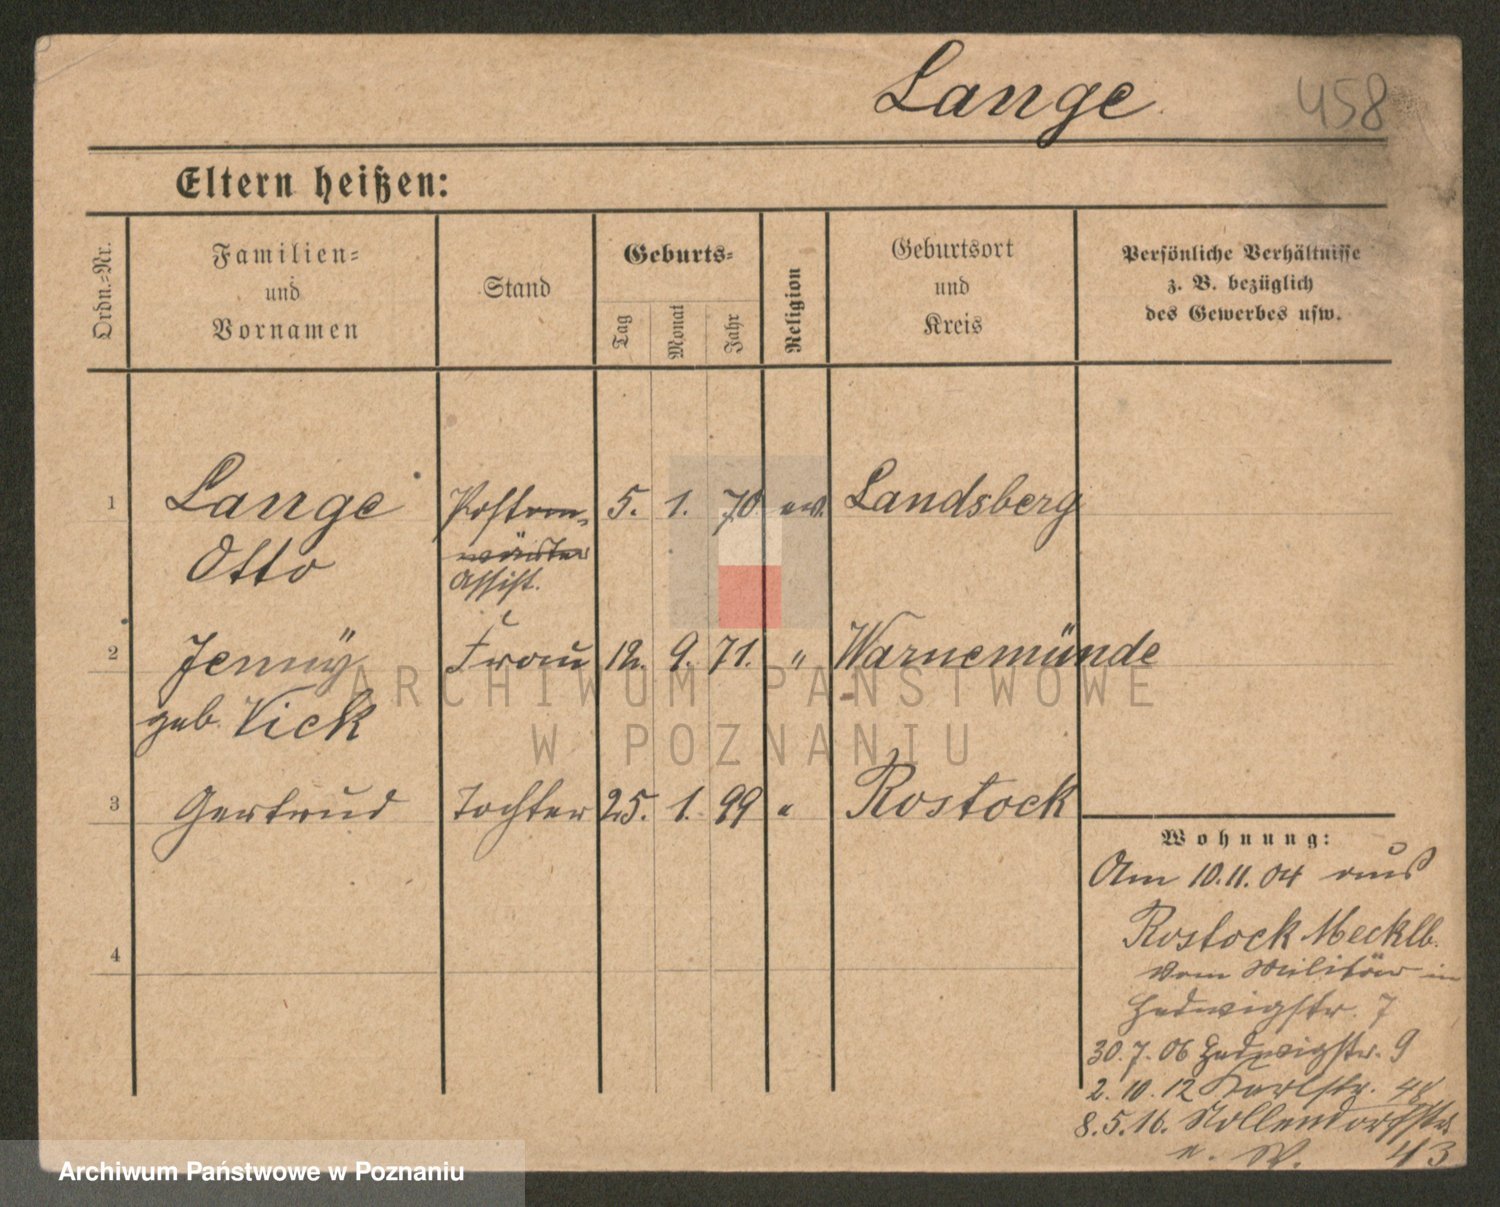 Lange
458
Eltern heißen:
Ordn.-Nr.
Familien-
und
Vornamen
Stand
Geburts-
Tag
Monat
Jahr
Religion
Geburtsort
und
Kreis
Persönliche Verhältnisse
z. B. bezüglich
des Gewerbes usw.
1 Lange Postan- 5. 1. 70 ev. Landsberg
Otto wärter
Assist.
2 Jenny Frau 12. 9. 71. " Warnemünde
geb. Vick
3 Gertrud Tochter 25. 1. 99 " Rostock
4
Wohnung:
Am 10.11.04 aus
Rostock Mecklb.
vom Militär in
Hedwigstr. 7
30.7.06 Hedwigstr. 9
2.10.12 Karlstr. 48
8.5.16. Nollendorfstr.
n. W. 43
ARCHIWUM PAŃSTWOWE
W POZNANIU
Archiwum Państwowe w Poznaniu